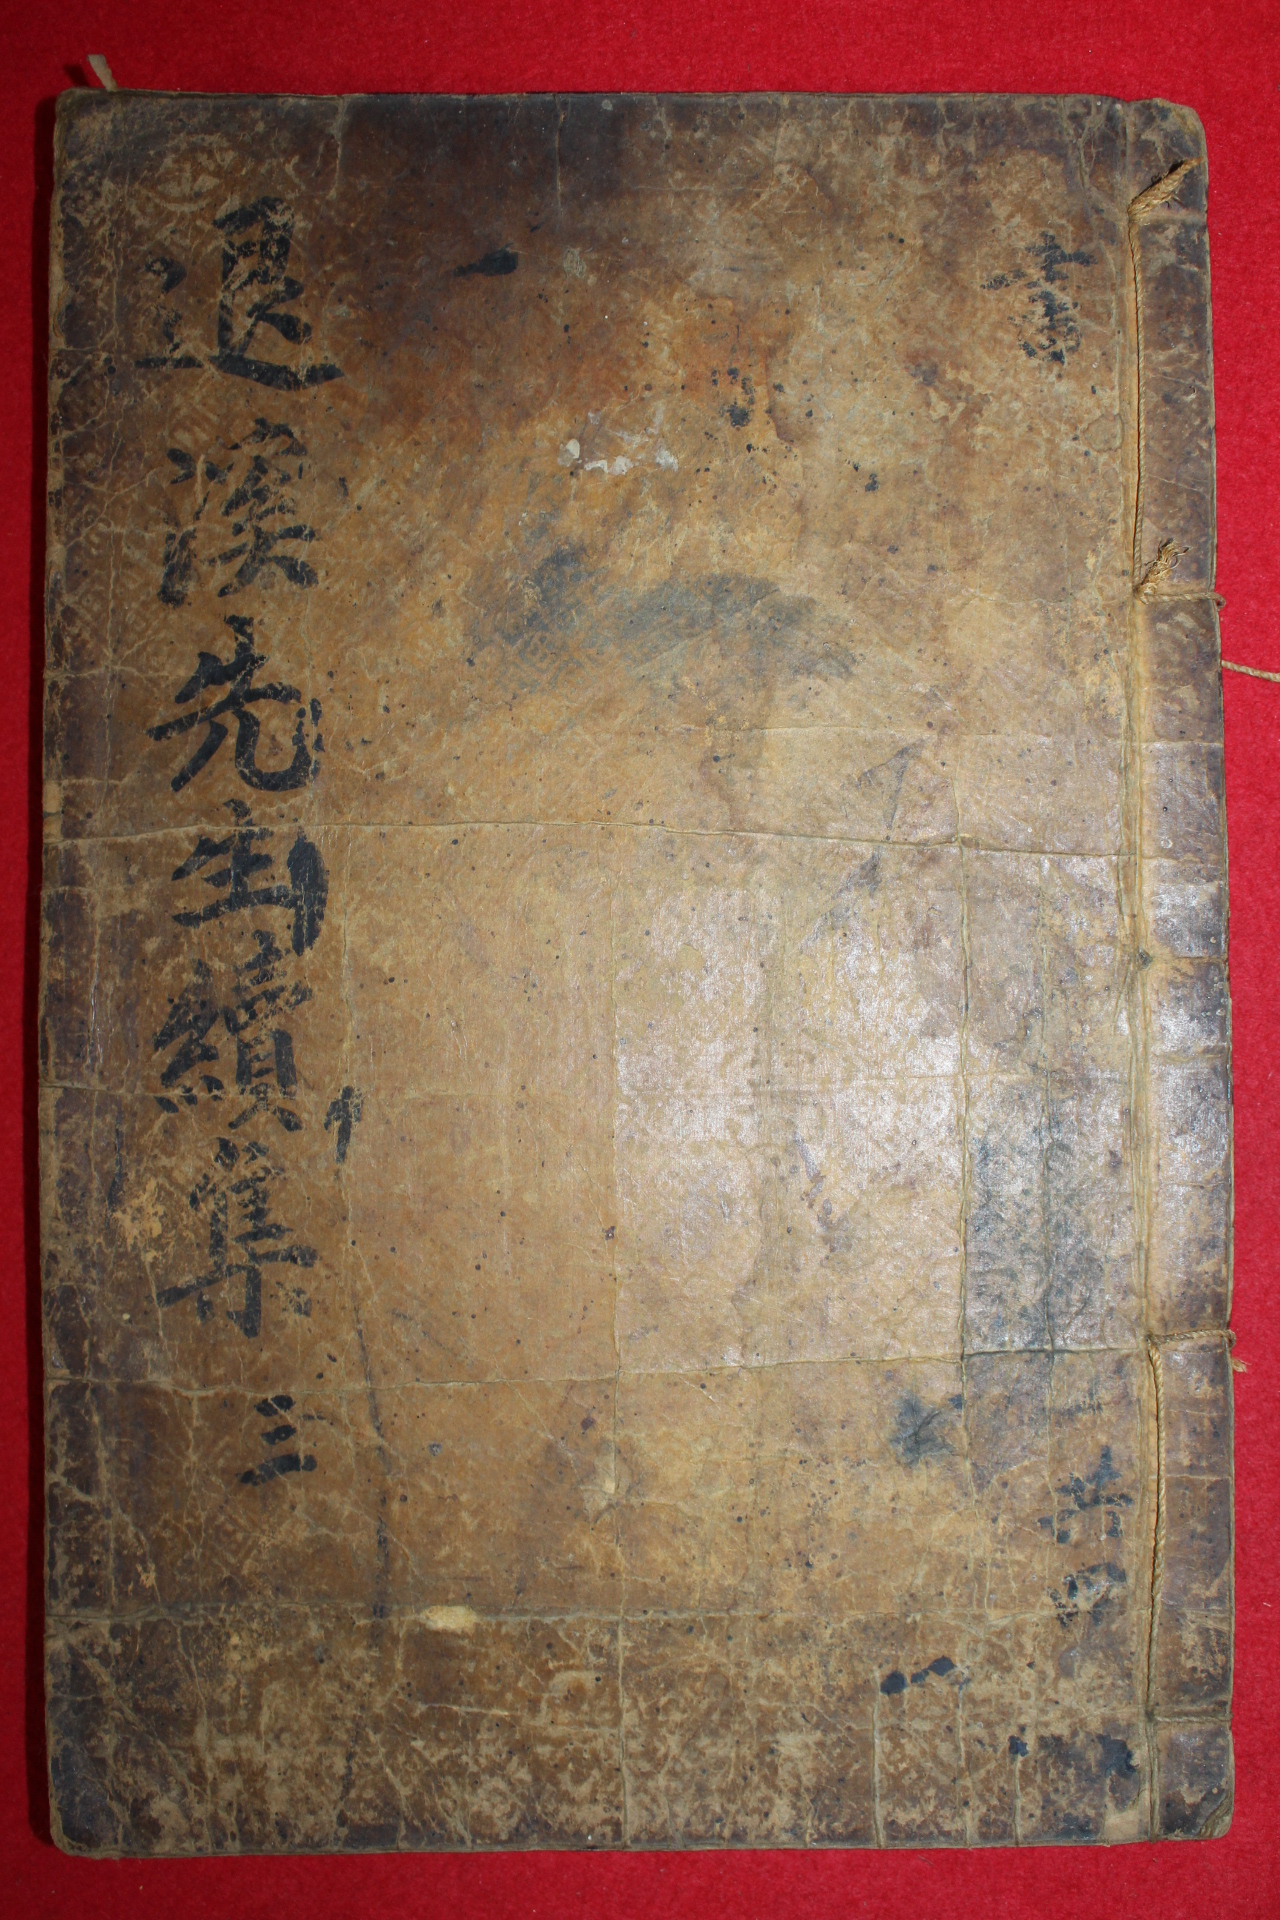 書
共四
退溪先生續集 三